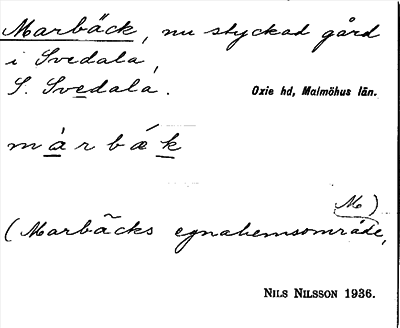 Marbäck, nu styckad gård
i Svedala,
S. Svedala.
Oxie hd, Malmöhus län.
màrbǽk
M)
(Marbäcks egnahemsområde,
NILS NILSSON 1936.